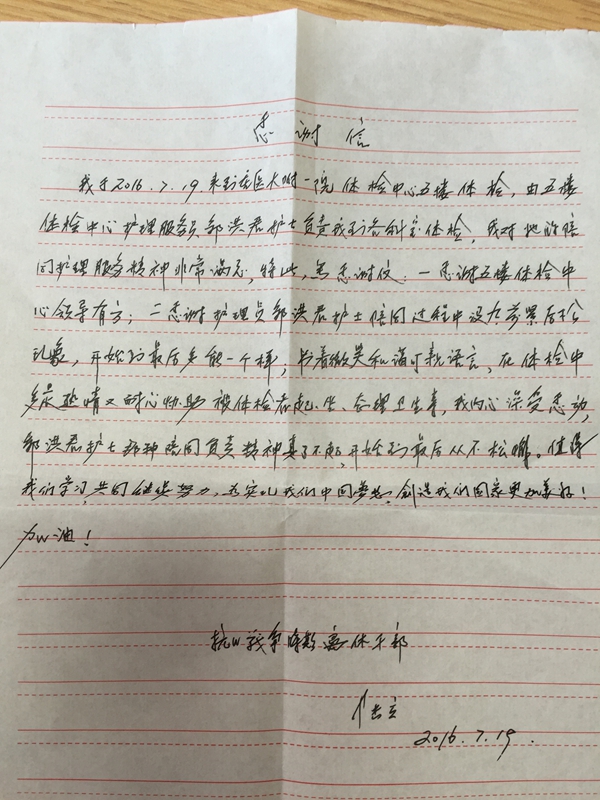 感谢信
我于2016.7.19.来到医大附一院体检中心五楼体检,由五楼
体检中心护理服务员邹洪君护士负责我到各科室体检,我对她的陪
同护理服务精神非常满意,特此,写感谢信:一感谢五楼体检中
心领导有方;二感谢护理员邹洪君护士陪同过程中没有前紧后松
现象,开始到最后美能一个样,带着微笑和谐可亲语言,在体检中
热情又耐心协助被体检者起、坐、合理卫生等,我内心深受感动,
邹洪君护士那种陪同负责精神真了不起,开始到最后从不松懈。值得
我们学习,共同继续努力,为实现我们中国梦想,创造我们国家更加美好!
加油!
抗日战争时期离休干部
2016.7.19.